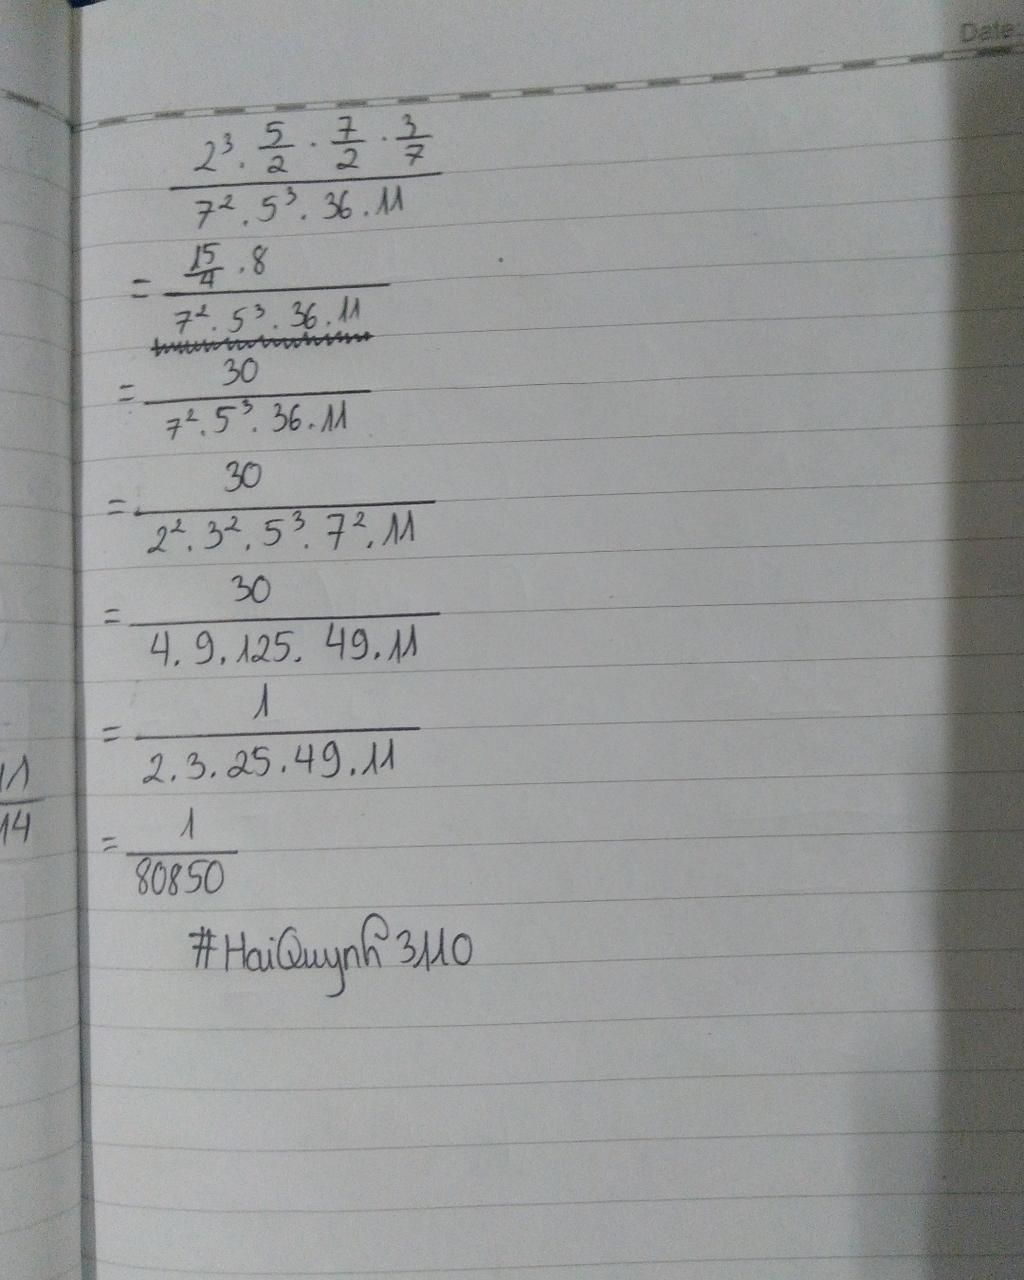 Date:
2³ . 5/2 . 7/2 . 3/7
7² . 5³ . 36 . 11
= 15/4 . 8
7² . 5³ . 36 . 11
= 30
7² . 5³ . 36 . 11
= 30
2² . 3² . 5³ . 7² . 11
= 30
4 . 9 . 125 . 49 . 11
= 1
2 . 3 . 25 . 49 . 11
= 1
80850
#HaiQuynh 3110
11
14